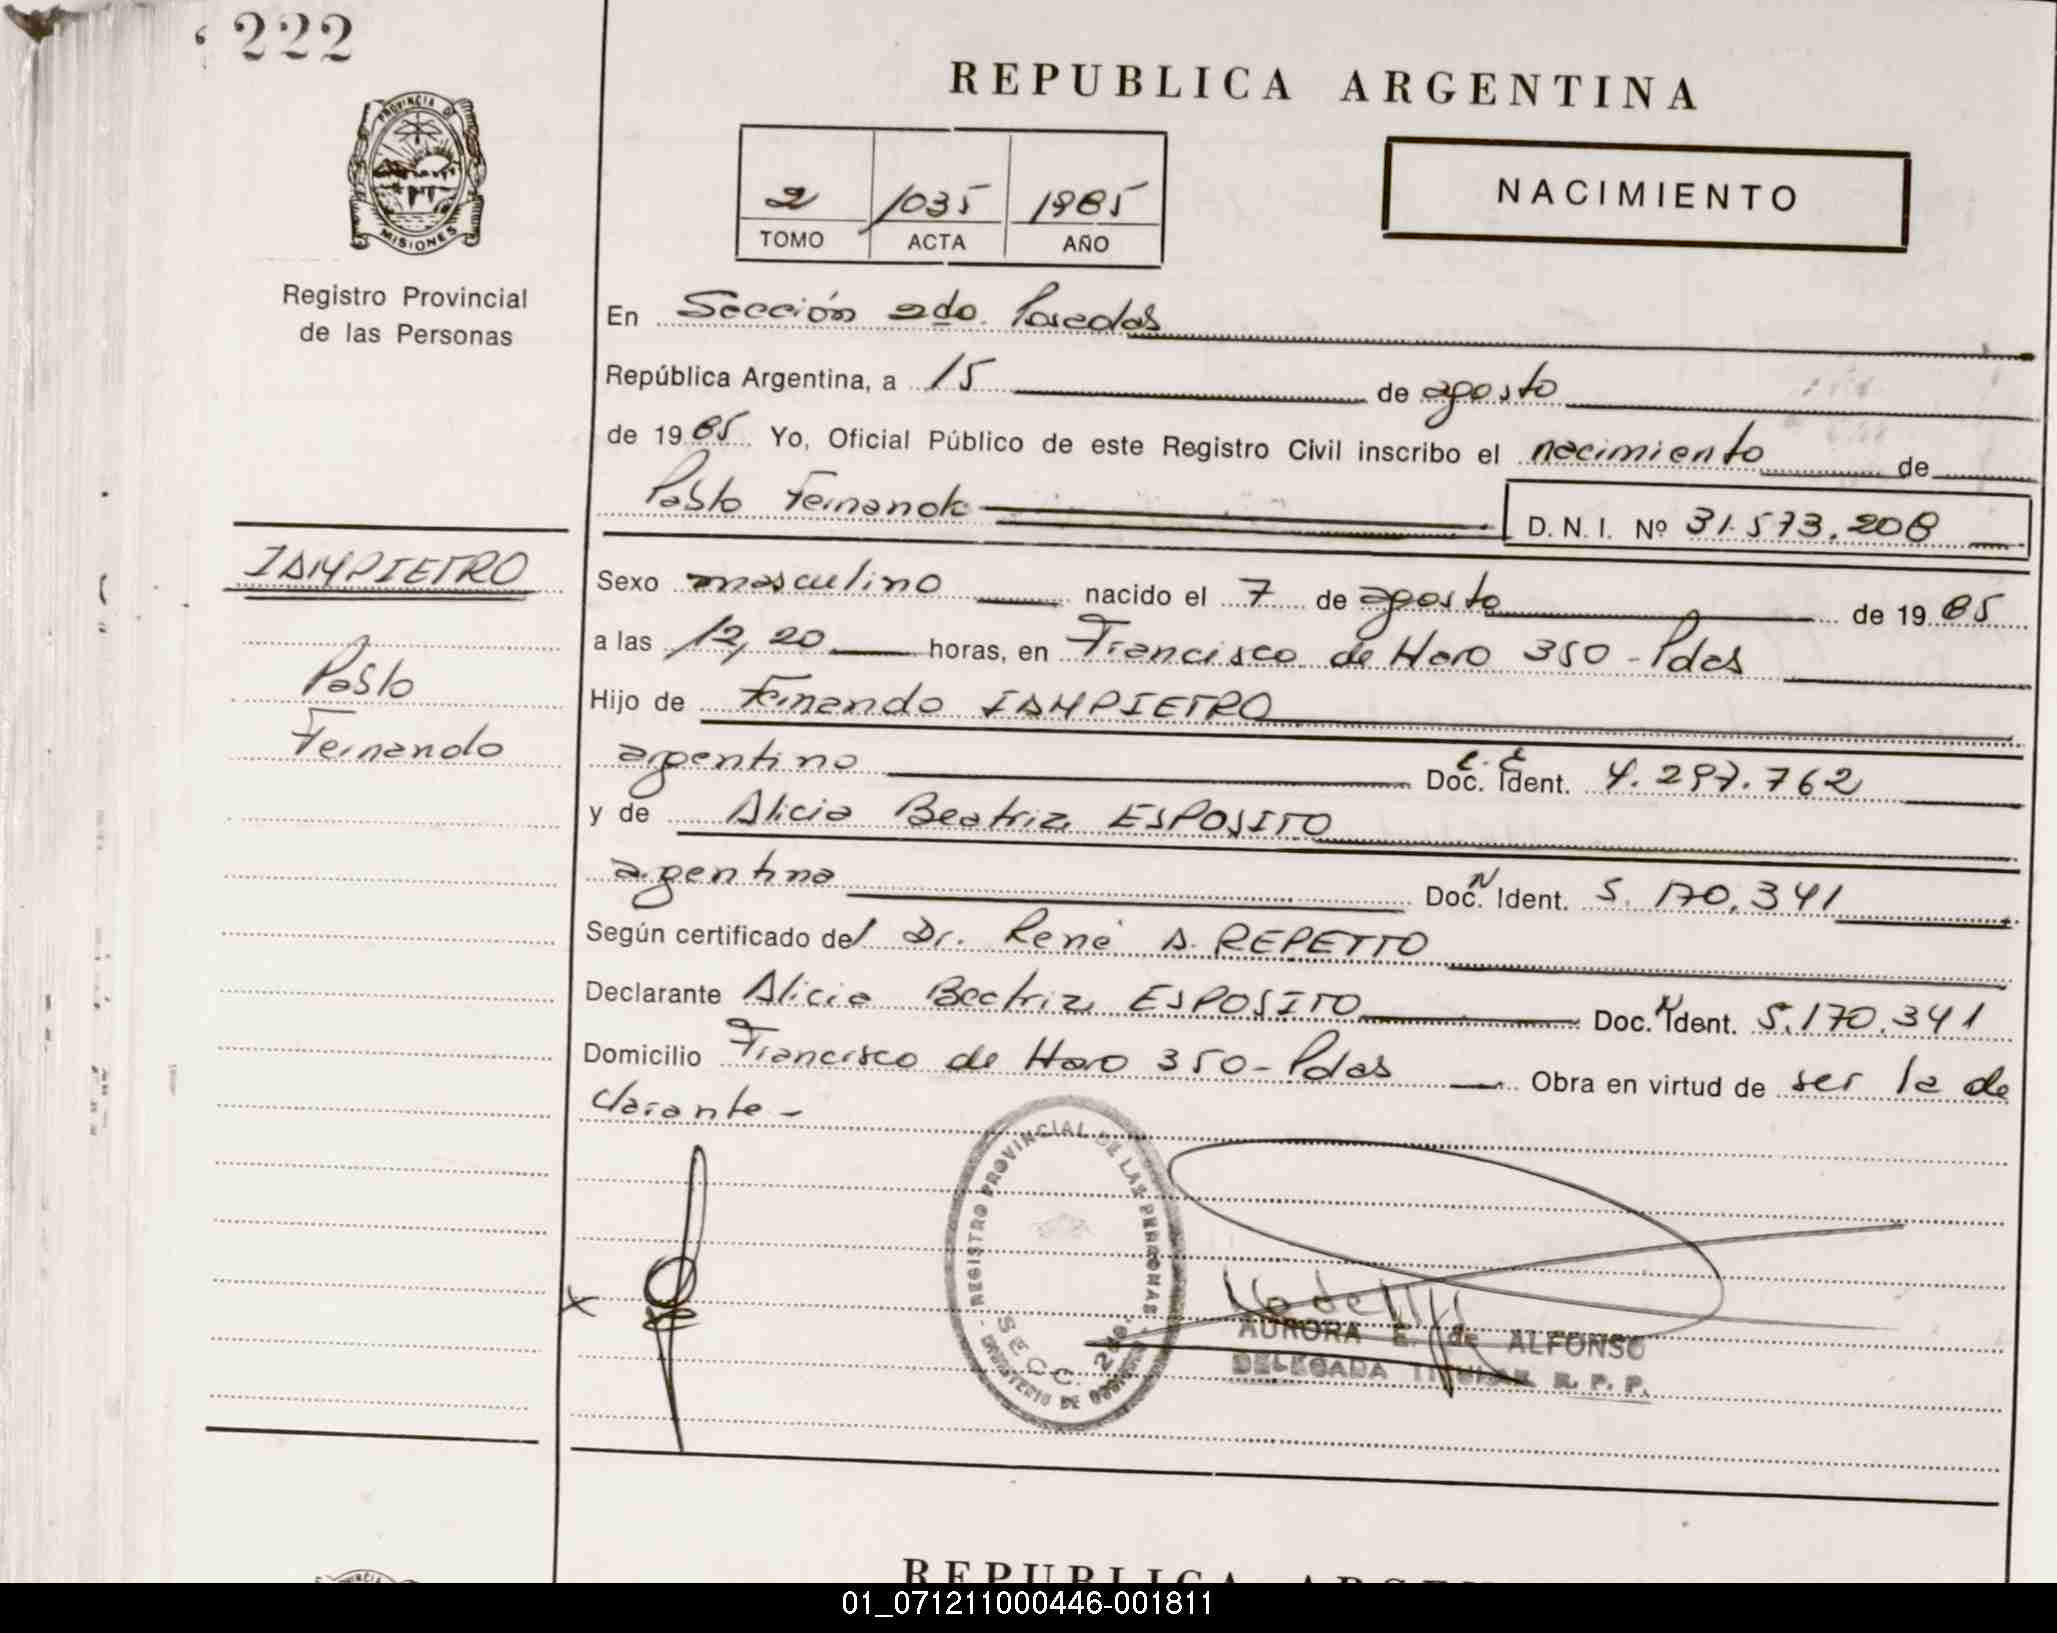 222
REPUBLICA ARGENTINA
PROVINCIA DE
MISIONES
Registro Provincial
de las Personas
2 1035 1985
TOMO ACTA AÑO
NACIMIENTO
En Sección 2do. Posadas
República Argentina, a 15 de agosto
de 1985 Yo, Oficial Público de este Registro Civil inscribo el nacimiento de
Pablo Fernando
D. N. I. Nº 31.573.208
IAMPIETRO
Pablo
Fernando
Sexo masculino nacido el 7 de agosto de 1985
a las 12,20 horas, en Francisco de Haro 350 - Pdas
Hijo de Fernando IAMPIETRO
argentino Doc. Ident. L. E 4.297.762
y de Alicia Beatriz ESPOSITO
argentina Doc. N Ident. 5.170.341
Según certificado del Dr. René A. REPETTO
Declarante Alicia Beatriz ESPOSITO Doc. N Ident. 5.170.341
Domicilio Francisco de Haro 350 - Pdas Obra en virtud de ser la de
clarante -
REGISTRO PROVINCIAL DE LAS PERSONAS
SECC. 2da.
MINISTERIO DE GOBIERNO
AURORA E. de ALFONSO
DELEGADA TITULAR R. P. P.
REPUBLICA ARGEN
01_071211000446-001811